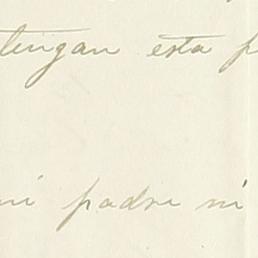 tengan esta p
ni padre ni